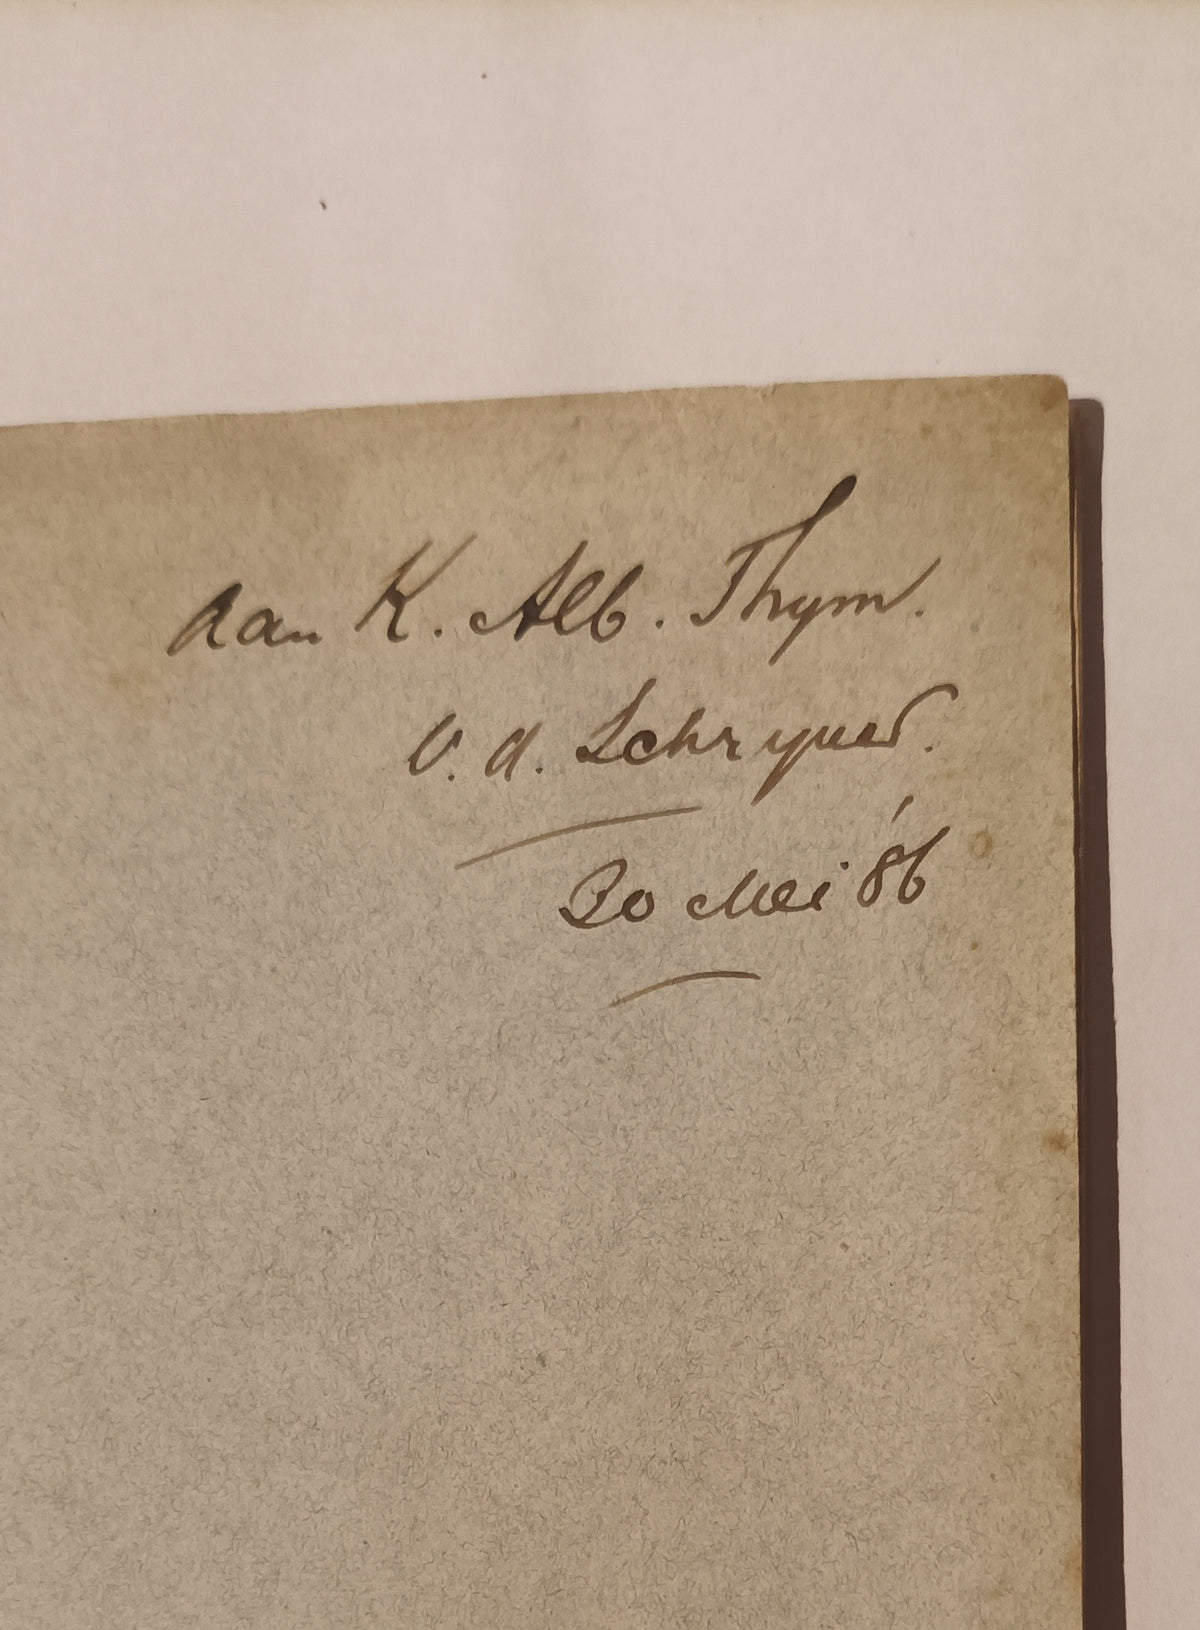 Aan K. Alb. Thym.
v. d. Schryver.
30 Mei '86